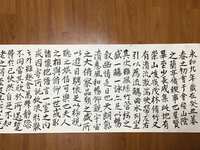 永和九年歲在癸丑暮
春之初會于會稽山陰
之蘭亭脩稧事也羣賢
畢至少長咸集此地有
崇山峻領茂林脩竹又
有清流激湍映帶左右
引以為流觴曲水列坐
其次雖無絲竹管弦之
盛一觴一詠亦足以暢
叙幽情是日也天朗氣
清惠風和暢仰觀宇宙
之大俯察品類之盛所
以遊目騁懷足以極視
聽之娛信可樂也夫人
之相與俯仰一世或取
諸懷抱悟言一室之內
或因寄所託放浪形骸
之外雖趣舍萬殊靜躁
不同當其欣於所遇暫
得於己快然自足不知
老之